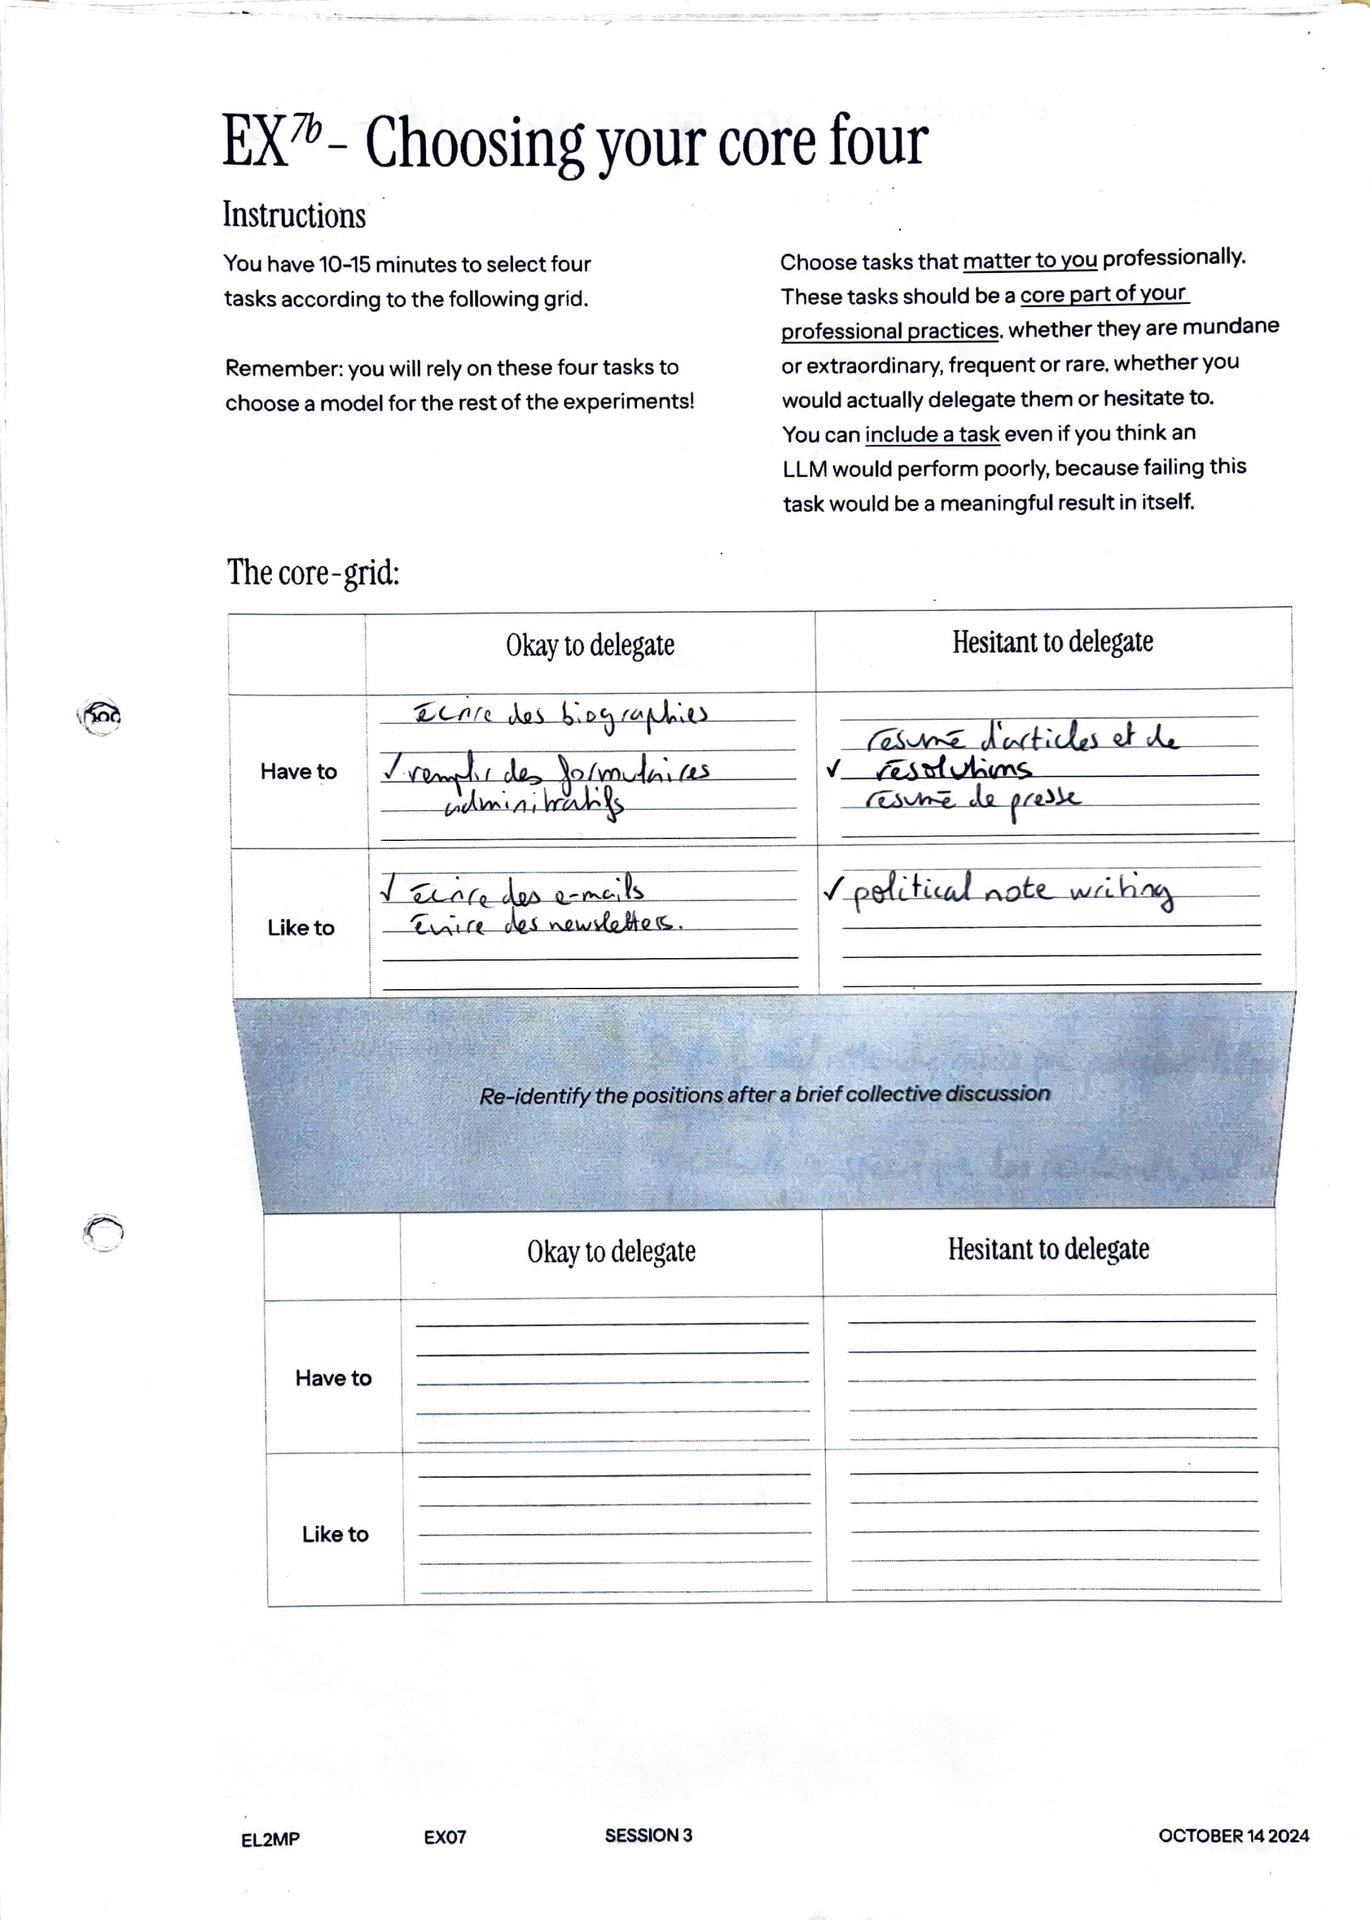 EX7b - Choosing your core four
Instructions
You have 10-15 minutes to select four
tasks according to the following grid.
Remember: you will rely on these four tasks to
choose a model for the rest of the experiments!
Choose tasks that matter to you professionally.
These tasks should be a core part of your
professional practices, whether they are mundane
or extraordinary, frequent or rare, whether you
would actually delegate them or hesitate to.
You can include a task even if you think an
LLM would perform poorly, because failing this
task would be a meaningful result in itself.
The core-grid:
Okay to delegate
Hesitant to delegate
Have to
écrire des biographies
✓ remplir des formulaires
adminitratifs
résumé d'articles et de
✓ résolutions
résumé de presse
Like to
✓ écrire des e-mails
écrire des newsletters.
✓ political note writing
Re-identify the positions after a brief collective discussion
Okay to delegate
Hesitant to delegate
Have to
Like to
EL2MP EX07 SESSION 3 OCTOBER 14 2024